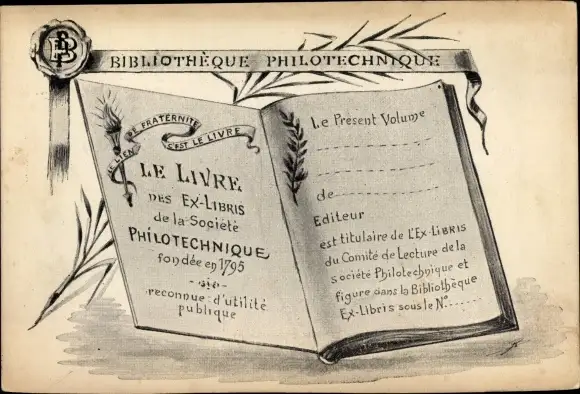 BIBLIOTHÈQUE PHILOTECHNIQUE
LE LIEN DE FRATERNITÉ
C'EST LE LIVRE
LE LIVRE
DES EX-LIBRIS
de la Société
PHILOTECHNIQUE
fondée en 1795
reconnue d'utilité
publique
Le Présent Volume
de
Editeur
est titulaire de L'EX-LIBRIS
du Comité de Lecture de la
société Philotechnique et
figure dans la Bibliothèque
Ex-Libris sous le No